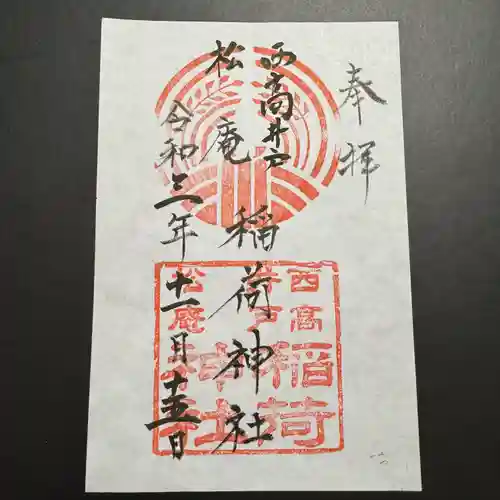 奉拝
西高井戸
松庵稲荷神社
令和三年十一月十五日
西高井戸
松庵稲荷神社